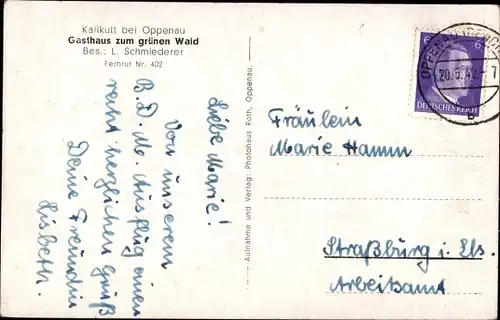 Kalikutt bei Oppenau
Gasthaus zum grünen Wald
Bes.: L. Schmiederer
Fernruf Nr. 402
Liebe Marie!
Von unserem
B.D.M. Ausflug einen
recht herzlichen Gruß
Deine Freundin
Lisbeth.
Aufnahme und Verlag: Photohaus Roth, Oppenau.
6
6
DEUTSCHES REICH
OPPENAU
b
Fräulein
Marie Hamm
Straßburg i. Els.
Arbeitsamt